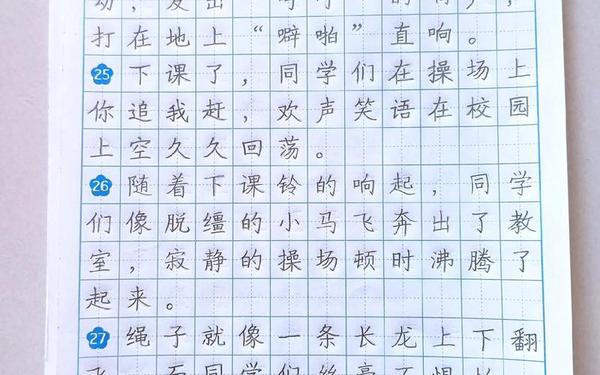 动，发出
打在地上“噼啪”直响。
25 下课了，同学们在操场上
你追我赶，欢声笑语在校园
上空久久回荡。
26 随着下课铃的响起，同学
们像脱缰的小马飞奔出了教
室，寂静的操场顿时沸腾了
起来。
27 绳子就像一条长龙上下翻
飞，而同学们丝毫不惧